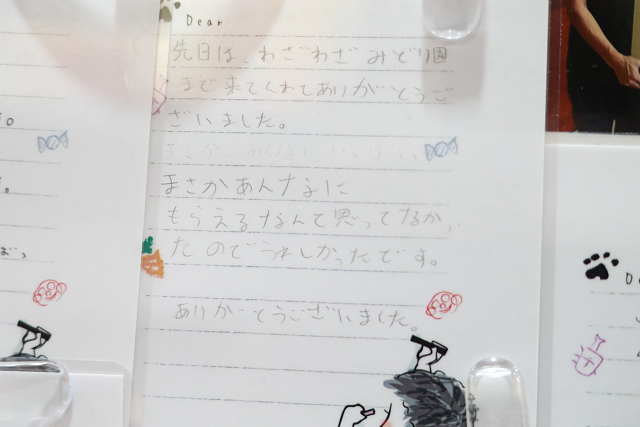 Dear
先日は、わざわざみどり園
まで来てくれてありがとうご
ざいました。
まさかあんなに
もらえるなんて思ってなかっ
たのでうれしかったです。
ありがとうございました。